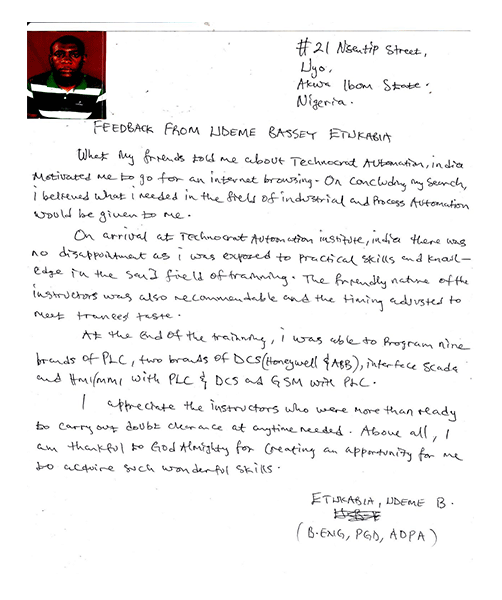 #21 Nsentip Street,
Uyo,
Akwa Ibom State.
Nigeria.
FEEDBACK FROM UDEME BASSEY ETUKABIA
What my friends told me about Technocrat Automation, india
Motivated me to go for an internet browsing. On concluding my search,
i believed what i needed in the field of industrial and Process Automation
would be given to me.
On arrival at Technocrat Automation institute, india there was
no disappointment as i was exposed to practical skills and knowl-
edge in the said field of trainning. The friendly nature of the
instructors was also recommendable and the timing adjusted to
meet trainees taste.
At the end of the trainning, i was able to program nine
brands of PLC, two brands of DCS (Honeywell & ABB), interface Scada
and HMI/MMI with PLC & DCS and GSM with PLC.
I appreciate the instructors who were more than ready
to carry out doubt clearance at anytime needed. Above all, I
am thankful to God Almighty for creating an opportunity for me
to acquire such wonderful skills.
ETUKABIA, UDEME B.
(B.ENG, PGD, ADPA)